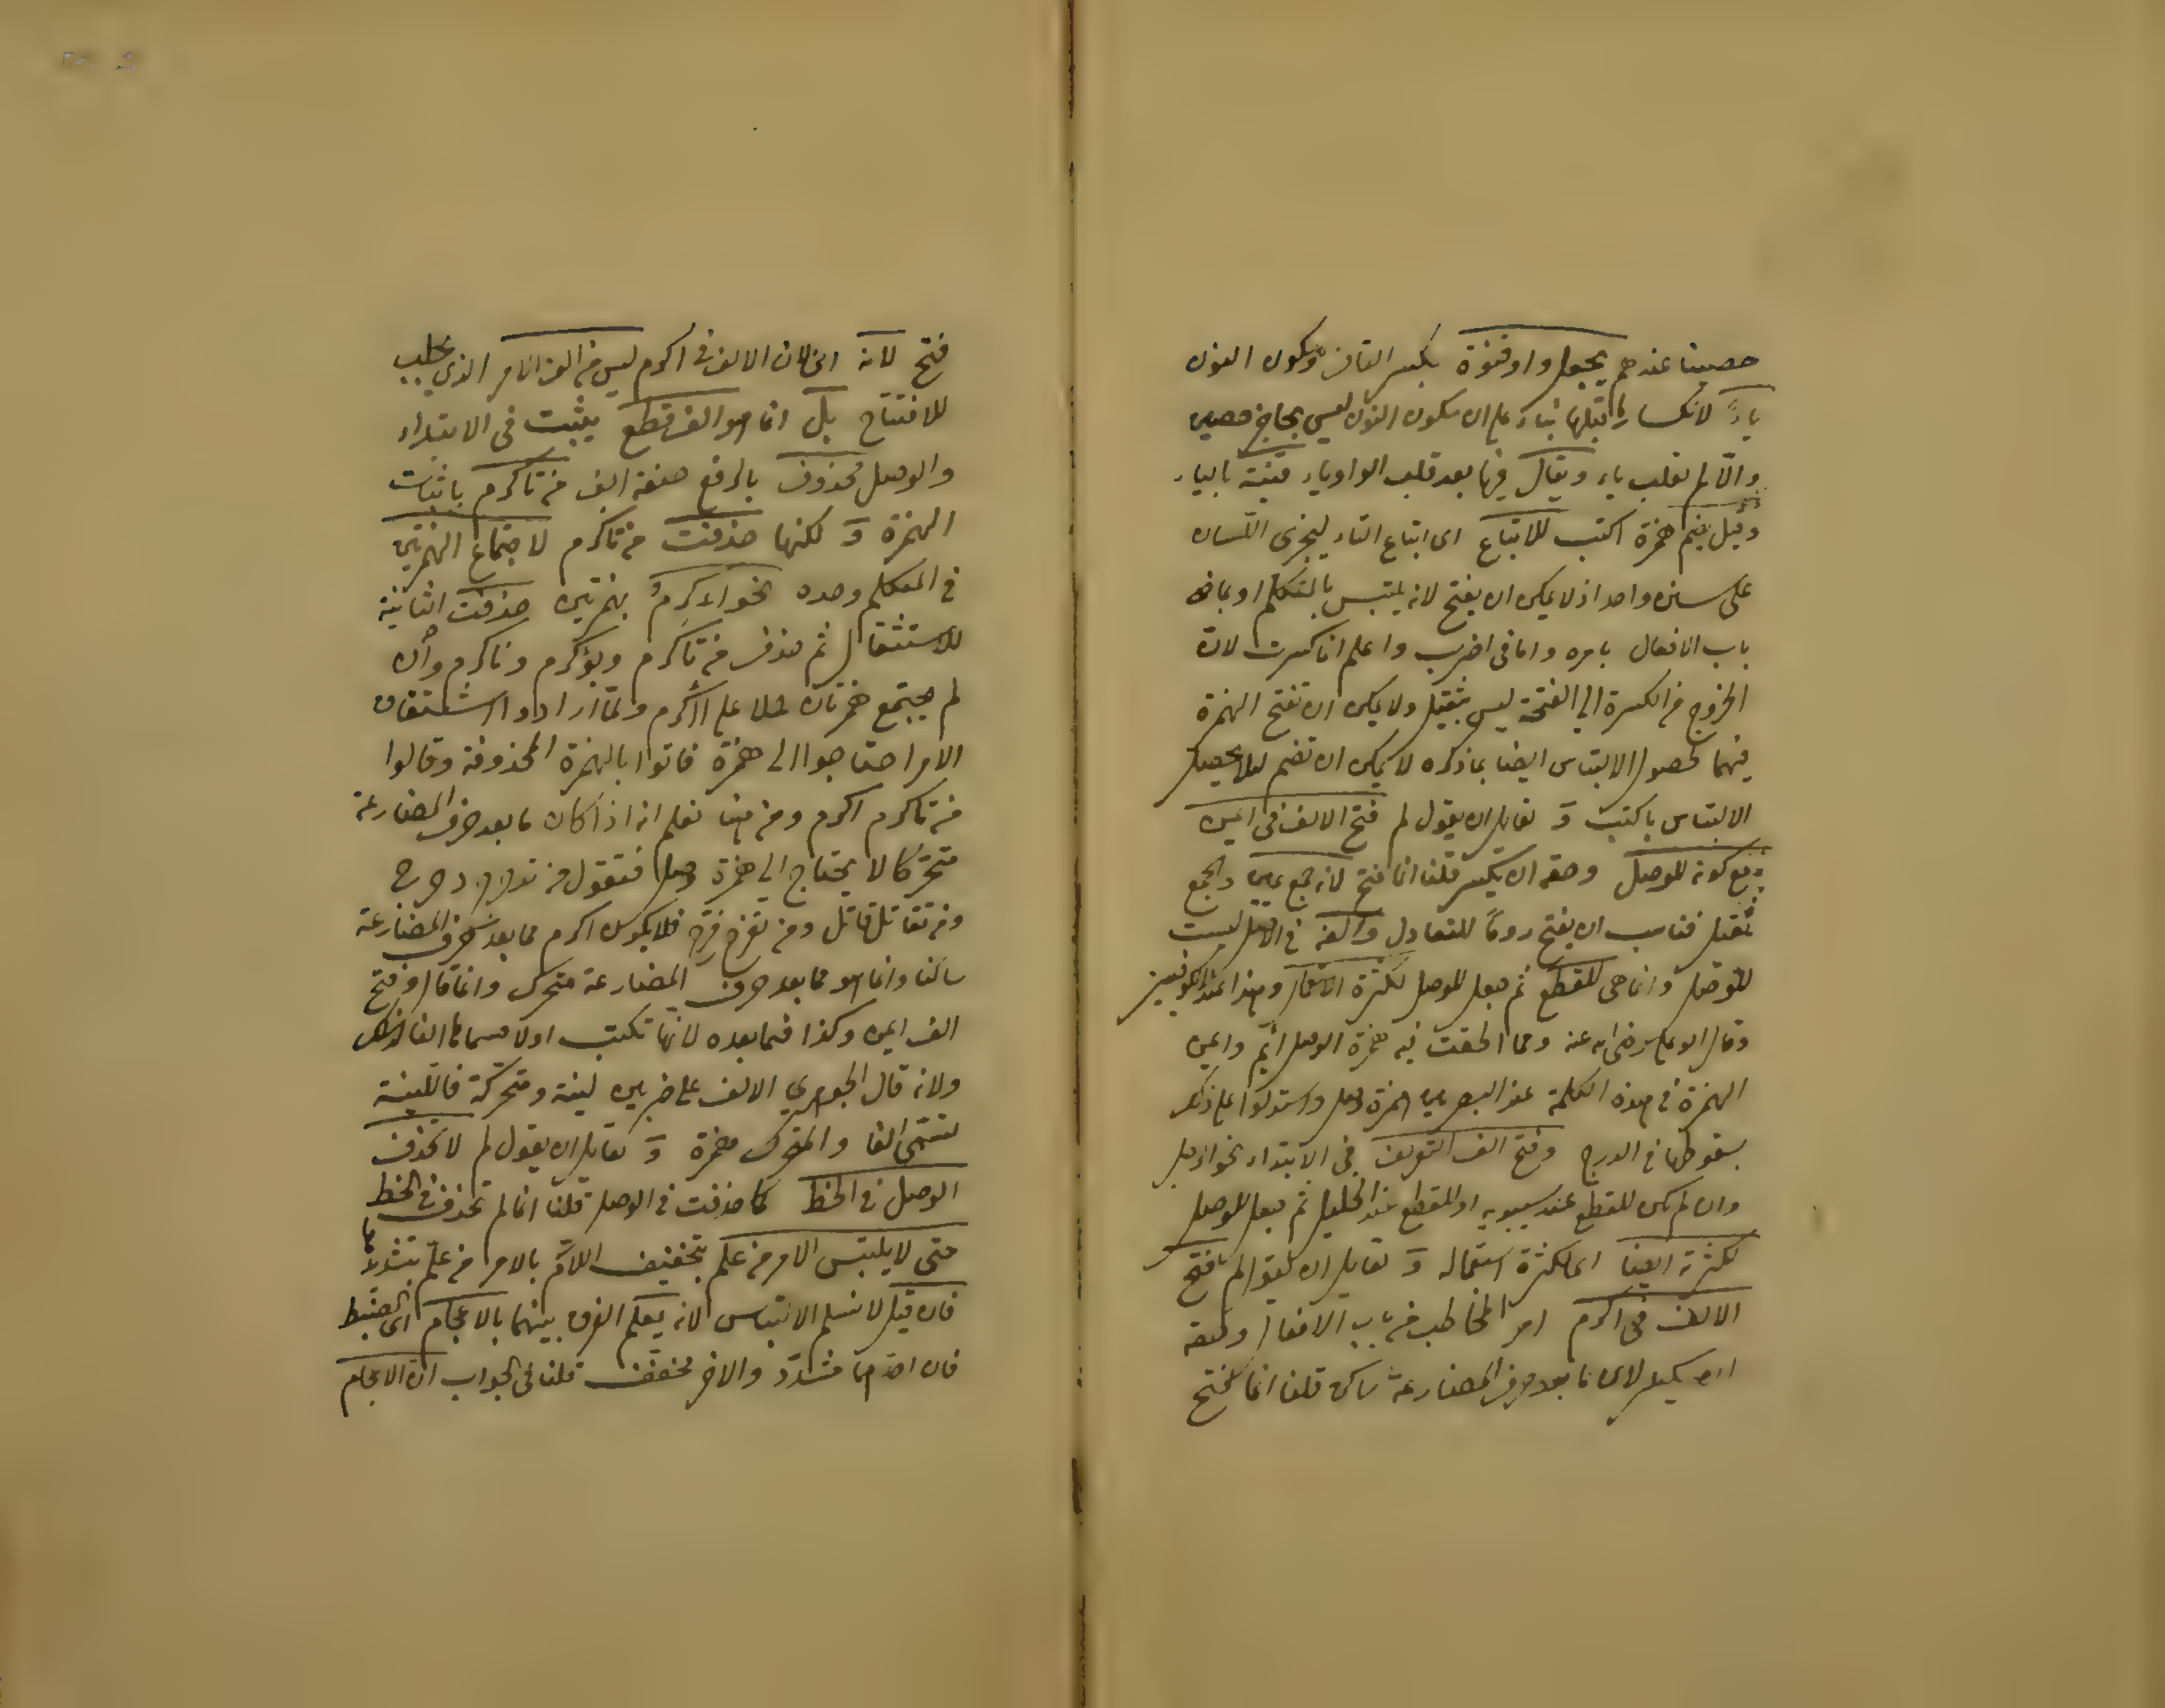 حصينا عندهم يجعل واو قنوة بكسر القاف وسكون النون
ياءً لانكسار ما قبلها بناء على ان سكون النون ليس بحاجز حصين
والّا لم تقلب ياء ويقال فيها بعد قلب الواو ياء قنية بالياء
وقيل بضم همزة اكتب للاتباع اى اتباع التاء ليجرى اللسان
على سنن واحد اذ لا يمكن ان يفتح لانه يلتبس بالمتكلم او بماضى
باب الافعال بامره واما فى اضرب واعلم انما كسرت لان
الخروج من الكسرة الى الفتحة ليس بثقيل ولا يمكن ان تفتح الهمزة
فيهما لحصول الالتباس ايضا بما ذكره لا يمكن ان تضم لئلا يحصل
الالتباس باكتب و لقايل ان يقول لم فتح الالف فى ايمن
مع كونه للوصل وحقه ان يكسر قلنا انما فتح لانه جمع يمين والجمع
ثقيل فناسب ان يفتح رومًا للتعادل والفه فى الاصل ليست
للوصل وانما هى للقطع ثم جعل للوصل لكثرة الاستعمال وهذا عند الكوفيين
وقال ابو على رضى الله عنه ومما الحقت فيه همزة الوصل ايم وايمن
الهمزة فى هذه الكلمة عند البصريين همزة وصل واستدلوا على ذلك
بسقوطها فى الدرج وفتح الف التعريف فى الابتداء نحو الرجل
وان لم يكن للقطع عند سيبويه او للقطع عند الخليل ثم جعل للوصل
لكثرته ايضا اى لكثرة استعماله و لقايل ان يقول لم يفتح
الالف فى اكرم امر المخاطب من باب الافعال وحقه
ان يكسر لان ما بعد حرف المضارعة ساكن قلنا انما يفتح
فتح لانه اى لان الالف فى اكرم ليس من الف الامر الذى يجلب
للافتتاح بل انما هو الف قطع يثبت فى الابتداء
والوصل محذوف بالرفع صفة الف من تاكرم باثبات
الهمزة و لكنها حذفت من تاكرم لاجتماع الهمزتين
فى المتكلم وحده نحو اءكرم بهمزتين حذفت الثانية
للاستثقال ثم حذف من تاكرم ويؤكرم وناكرم وان
لم يجتمع همزتان حملا على أأكرم ولما ارادوا اشتقاق
الامر احتاجوا الى همزة فاتوا بالهمزة المحذوفة وقالوا
من تاكرم اكرم ومن هنا نعلم انه اذا كان ما بعد حرف المضارعة
متحركا لا يحتاج الى همزة وصل فتقول من تدحرج دحرج
ومن تقاتل قاتل ومن تفرح فرح فلا يكون اكرم مما بعد حرف المضارعة
ساكنا وانما هو مما بعد حرف المضارعة متحرك وانما قال وفتح
الف ايمن وكذا فيما بعده لانها تكتب اولا فسماها الفا لذلك
ولانه قال الجوهرى الالف على ضربين لينة ومتحركة فاللينة
تسمى الفا والمتحرك همزة و لقايل ان يقول لم لا تحذف
الوصل فى الخط كما حذفت فى الوصل قلنا انما لم تحذف فى الخط
حتى لا يلتبس الامر من علم بتخفيف اللام بالامر من علّم بتشديدها
فان قيل لا نسلم الالتباس لانه يعلم الفرق بينهما بالاعجام اى الضبط
فان احدهما مشدّد والاخر مخفف قلنا فى الجواب ان الاعجام